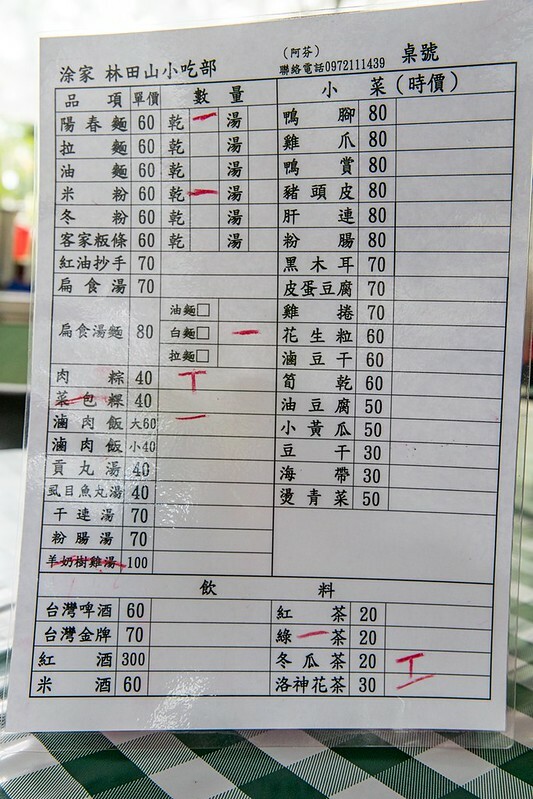 （阿芬）
涂家 林田山小吃部 聯絡電話0972111439 桌號
品項 單價 數量 小菜（時價）
陽春麵 60 乾 湯 鴨腳 80
拉麵 60 乾 湯 雞爪 80
油麵 60 乾 湯 鴨賞 80
米粉 60 乾 湯 豬頭皮 80
冬粉 60 乾 湯 肝連 80
客家粄條 60 乾 湯 粉腸 80
紅油抄手 70 黑木耳 70
扁食湯 70 皮蛋豆腐 70
扁食湯麵 80 油麵□ 雞捲 70
白麵□ 花生粒 60
拉麵□ 滷豆干 60
肉粽 40 筍乾 60
菜包粿 40 油豆腐 50
滷肉飯 大60 小黃瓜 50
滷肉飯 小40 豆干 30
貢丸湯 40 海帶 30
虱目魚丸湯 40 燙青菜 50
干連湯 70
粉腸湯 70
羊奶樹雞湯 100
飲料
台灣啤酒 60 紅茶 20
台灣金牌 70 綠茶 20
紅酒 300 冬瓜茶 20
米酒 60 洛神花茶 30